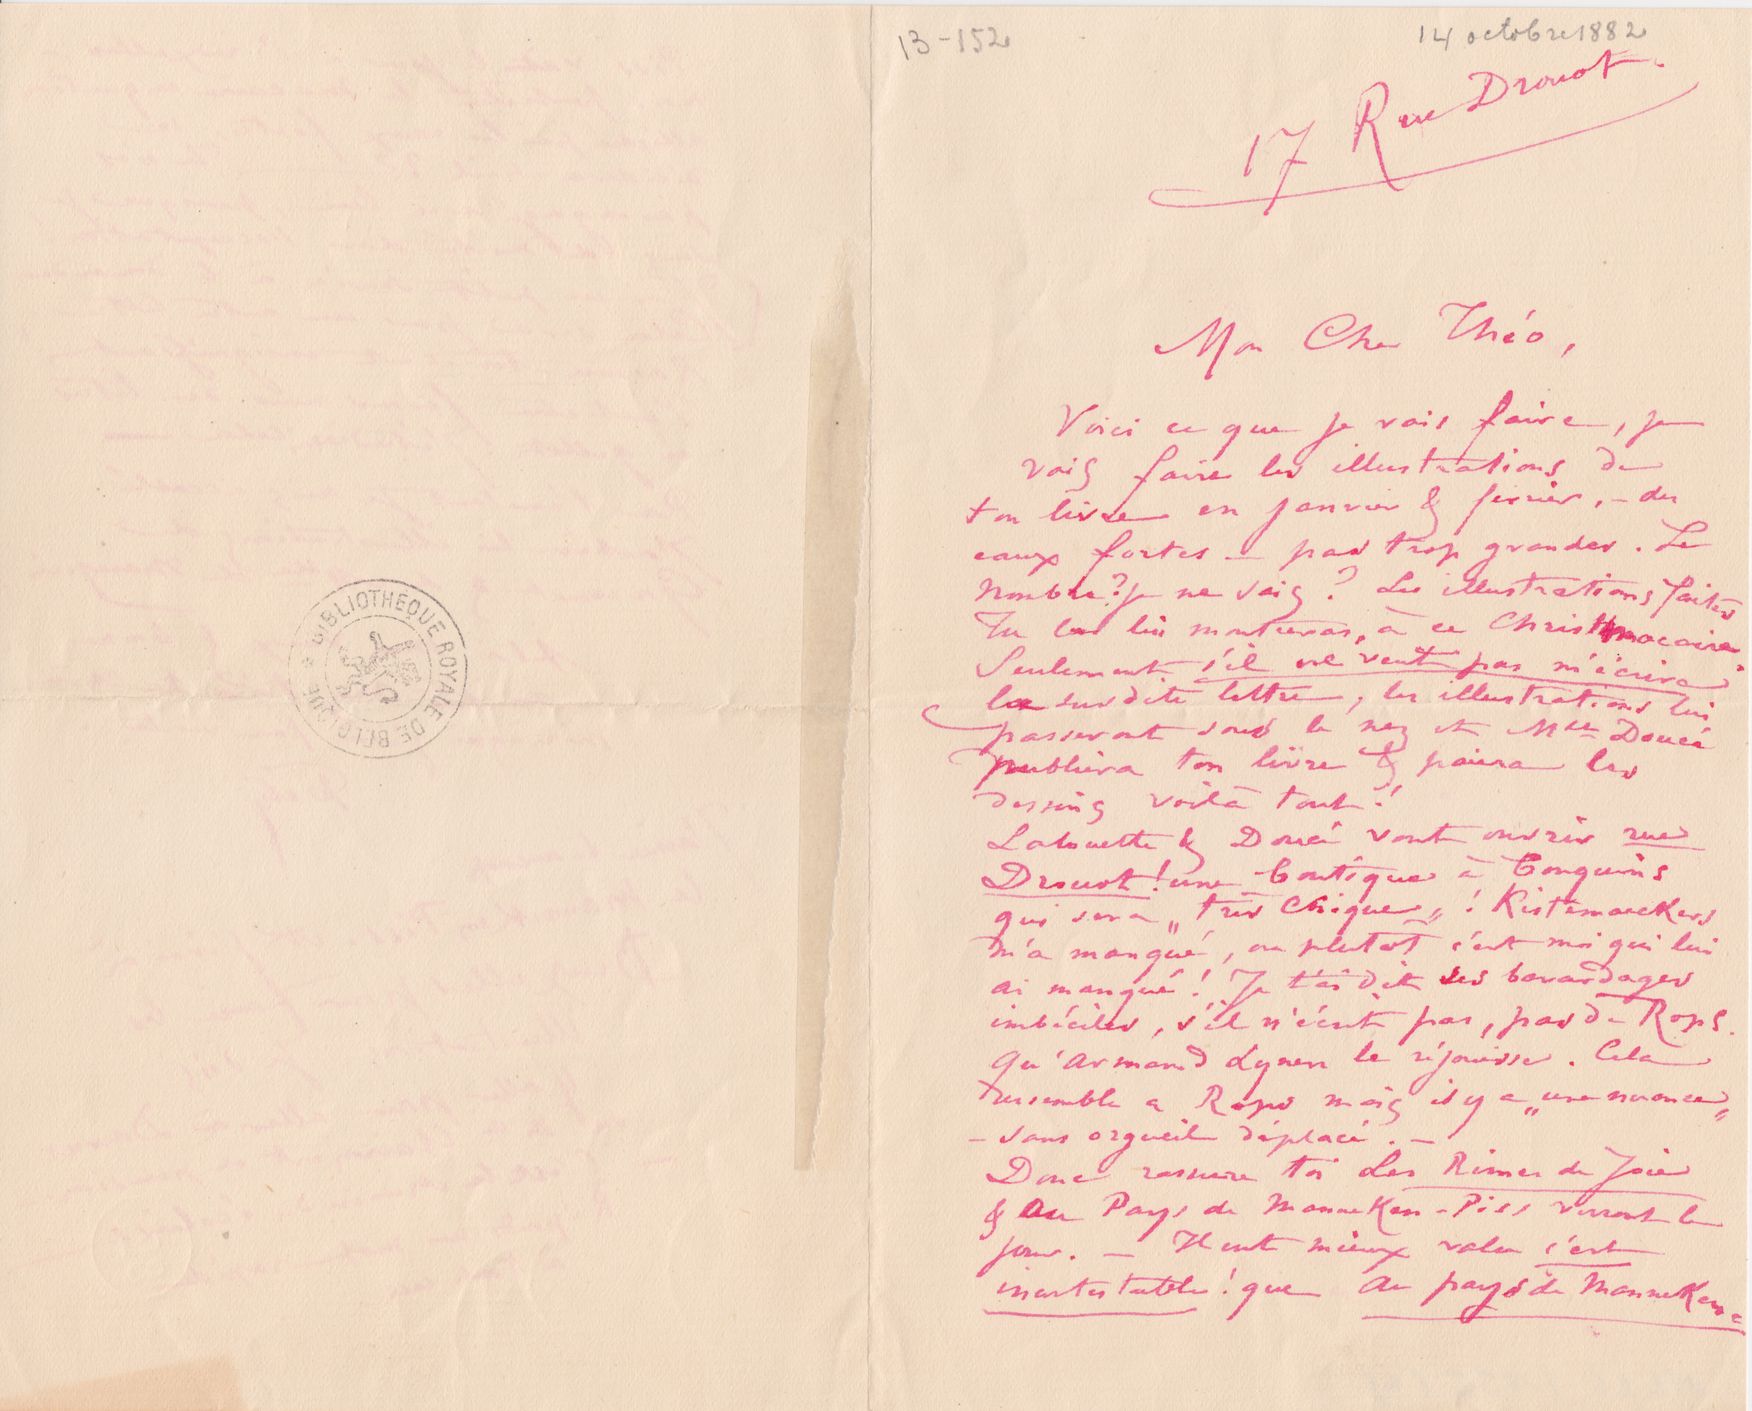 13-152
14 octobre 1882
17 Rue Drouot.
BIBLIOTHEQUE ROYALE DE BELGIQUE *
Mon Cher Théo,
Voici ce que je vais faire, je
vais faire les illustrations de
ton livre en janvier & février, - des
eaux fortes - pas trop grandes. Le
Nombre? je ne sais? Les illustrations faites
Tu les lui montreras, à ce Christ macaire.
Seulement s'il ne veut pas m'écrire
la susdite lettre, les illustrations lui
passeront sous le nez et Mlle Doucé
publiera ton livre & paiera les
dessins voilà tout!
Lalouette & Doucé vont ouvrir rue
Drouot! une boutique à bouquins
qui sera „très chique„! Kistemaeckers
m'a manqué, ou plutôt c'est moi qui lui
ai manqué! Je t'ai dit ses bavardages
imbéciles, s'il n'écrit pas, pas de Rops.
Qu'Armand Lynen le réjouisse. Cela
ressemble a Rops mais il y a „une nuance„
- sans orgueil déplacé. -
Donc rassure toi Les Rimes de Joie
& Au Pays de Manneken-Piss verront le
jour. - Il eut mieux valu c'est
incontestable! que Au pays de Manneken-